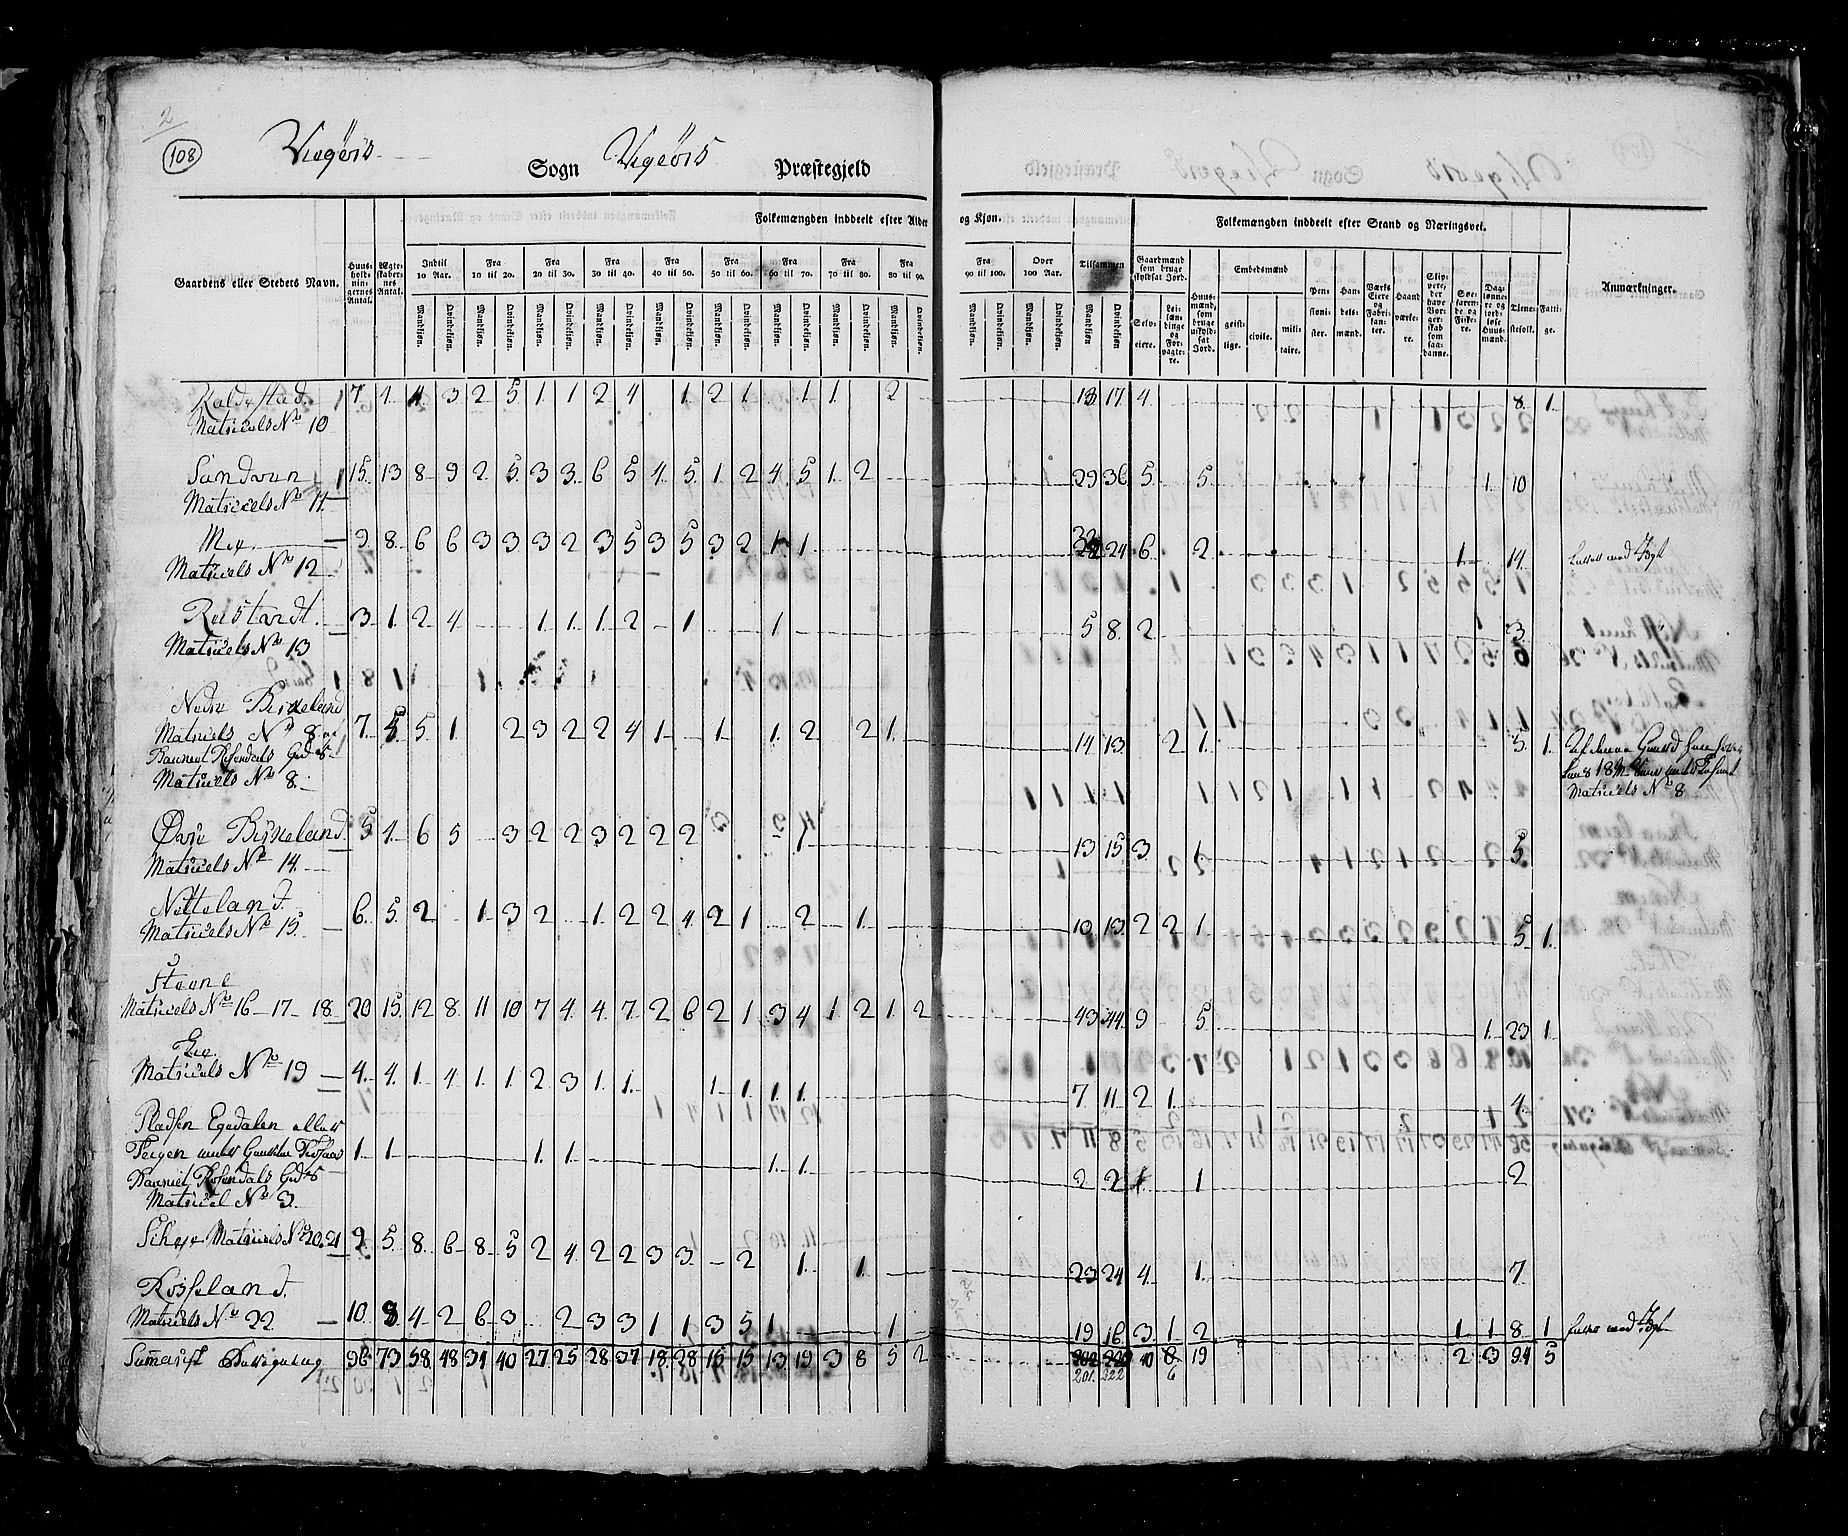 2
108
Viigøris Sogn Vigøris Præstegjeld
Folkemængden inddeelt efter Alder og Kjøn. Folkemængden inddeelt efter Stand og Næringsvei.
Gaardens eller Stedets Navn. Huus-hold-nin-gernes Antal. Ægte-skaber-nes Antal. Indtil 10 Aar. Fra 10 til 20. Fra 20 til 30. Fra 30 til 40. Fra 40 til 50. Fra 50 til 60. Fra 60 til 70. Fra 70 til 80. Fra 80 til 90. Fra 90 til 100. Over 100 Aar. Tilsammen Gaardmænd som bruge skyldsat Jord. Huus-mænd, som bruge uskyld-sat Jord. Embedsmænd Pen-sioni-ster. Han-dels-mænd. Værks Eiere og Fabri-kan-ter. Haand værke-re. Skip-pere, der have Bor-ger-skab som saa-danne. Søe-faren-de og Fiske-re. Dag-lønne-re og jord-løse Huus-mænd. Tiene-stefolk. Fatti-ge. Anmærkninger.
Mandkjøn. Qvindekjøn. Mandkjøn. Qvindekjøn. Mandkjøn. Qvindekjøn. Mandkjøn. Qvindekjøn. Mandkjøn. Qvindekjøn. Mandkjøn. Qvindekjøn. Mandkjøn. Qvindekjøn. Mandkjøn. Qvindekjøn. Mandkjøn. Qvindekjøn. Mandkjøn. Qvindekjøn. Mandkjøn. Qvindekjøn. Mandkjøn. Qvindekjøn. Selv-eiere. Lei-læn-dinge og For-pagte-re. geist-lige. civile. mili-taire.
7 4 4 3 2 5 1 1 2 4 1 2 1 1 1 2 18 17 4 8 1
Matricels No 10
Sandvun 15 13 8 9 2 5 3 3 6 5 4 5 1 2 4 5 1 2 29 36 5 5 1 10
Matricels No 11
9 8 6 6 3 3 3 2 3 5 3 5 3 2 1 1 24 6 2 1 14
Matricels No 12
3 1 2 4 1 1 1 2 1 1 5 8 2 3
Matricels No 13
Nedre Birkeland
Matricels No 8 7 5 5 1 2 3 2 2 4 1 1 1 2 2 1 14 13 2 1 5 1
Matricels No 8 Matricels No 8
Øvre Birkeland 5 4 6 5 3 2 2 3 2 2 2 1 13 15 3 1 5
Matricels No 14
Netteland 6 5 2 1 3 2 1 2 2 4 2 1 2 1 10 13 2 2 1 5 1
Matricels No 15
Steene
Matricels No 16 17 18 20 15 12 8 11 10 7 4 4 7 2 6 2 1 3 4 1 2 1 2 43 44 9 5 1 23 1
Matricels No 19 4 4 1 4 1 1 2 3 1 1 1 1 1 1 7 11 2 1 4
Pladsen Egedalen eller
1 1 1 1 1 1 2 2 1 2
Matricel No 3
Matricels No 20 21 9 5 8 6 8 5 2 4 2 2 3 3 2 1 1 23 24 4 1 7
Røsseland
Matricels No 22 10 8 4 2 6 3 2 3 3 1 1 3 5 1 1 19 16 3 1 2 1 1 8 1
96 73 58 48 34 40 27 25 28 37 18 28 15 15 13 19 3 8 5 2 40 8 19 2 3 94 5
201 222 6